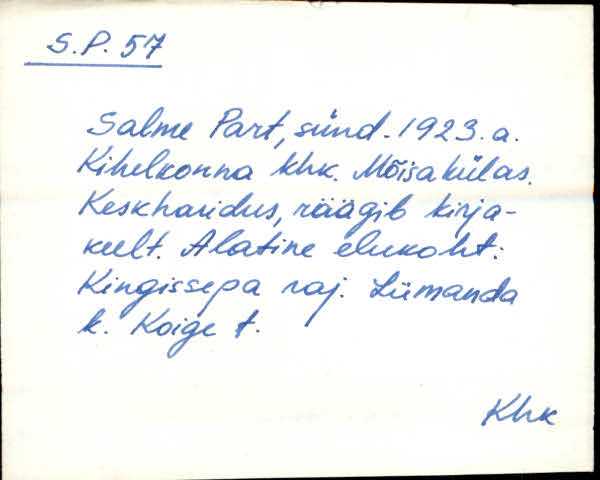 S.P. 57
Salme Part, sünd. 1923. a.
Kihelkonna khk. Mõisakülas.
Keskharidus, räägib kirja-
keelt. Alatine elukoht:
Kingissepa raj. Lümanda
k. Koige t.
Khk